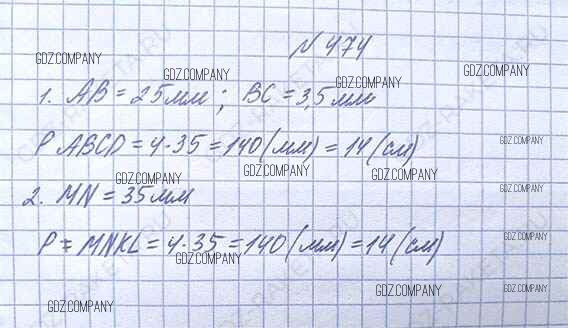 № 474
GDZ.COMPANY
GDZ.COMPANY
GDZ.COMPANY
GDZ.COMPANY
1. AB = 25 мм ; BC = 3,5 мм
P ABCD = 4·35 = 140 (мм) = 14 (см)
GDZ.COMPANY
GDZ.COMPANY
GDZ.COMPANY
GDZ.COMPANY
GDZ.COMPANY
2. MN = 35 мм
P = MNKL = 4·35 = 140 (мм) = 14 (см)
GDZ.COMPANY
GDZ.COMPANY
GDZ.COMPANY
GDZ.COMPANY
GDZ.COMPANY